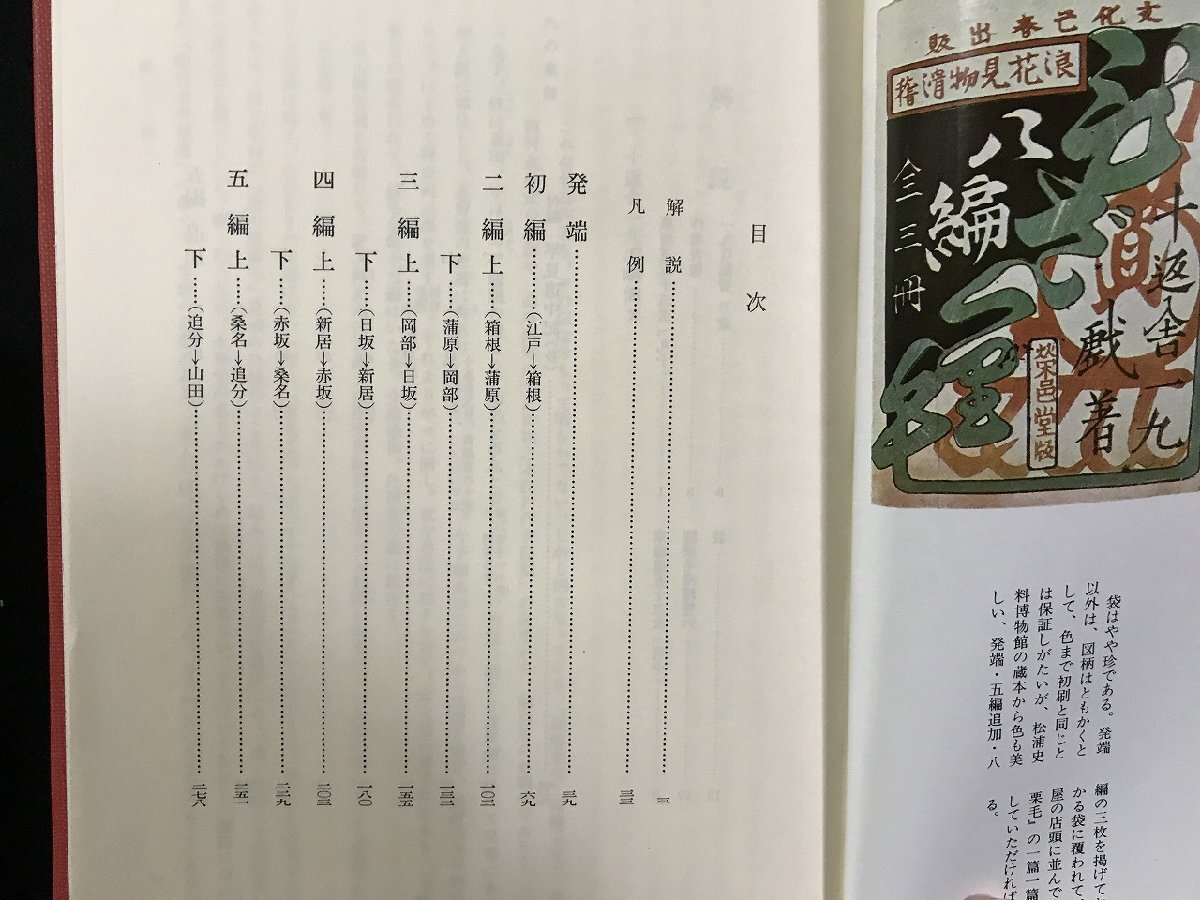 文化己春出販
浪花見物滑稽
八編
全三冊
十返舎一九
戯著
栄邑堂版
袋はやや珍である。発端
以外は、図柄はともかくと
して、色まで初刷と同じと
は保証しがたいが、松浦史
料博物館の蔵本から色も美
しい、発端・五編追加・八
編の三枚を掲げて
かる袋に覆われて、
屋の店頭に並んで
栗毛』の一篇一篇
していただければ
る。
目次
解説……三
凡例……三三
発端……三九
初編……(江戸→箱根)……六九
二編上……(箱根→蒲原)……一〇三
下……(蒲原→岡部)……一三二
三編上……(岡部→日坂)……一五五
下……(日坂→新居)……一八〇
四編上……(新居→赤坂)……二〇三
下……(赤坂→桑名)……二二九
五編上……(桑名→追分)……二五一
下……(追分→山田)……二七八